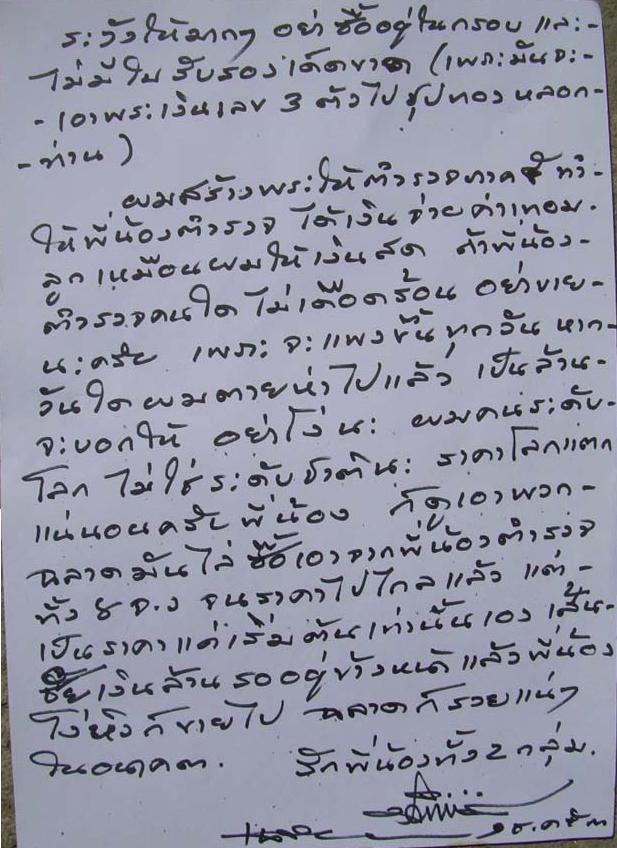 ระวังให้มากๆ อย่าซื้ออยู่ในกรอบ และ-
ไม่มีใบรับรองเด็ดขาด (เพราะมันจะ-
- เอาพระเงินเลข 3 ตัวไปชุปทองหลอก-
- ท่าน)
ผมสร้างพระให้ตำรวจภาค 8 ทำ
ให้พี่น้องตำรวจ ได้เงินจ่ายค่าเทอม.
ลูกเหมือนผมให้เงินสด ถ้าพี่น้อง-
ตำรวจคนใดไม่เดือดร้อน อย่าขาย-
นะครับ เพราะจะแพงขึ้นทุกวัน หาก-
วันใดผมตายห่าไปแล้ว เป็นล้าน-
จะบอกให้ อย่าโง่นะ ผมคนระดับ-
โลก ไม่ใช่ระดับชาตินะ ราคาโลกแตก
แน่นอนครับพี่น้อง ก็ดูเอาพวก-
ฉลาดมันไล่ซื้อเอาจากพี่น้องตำรวจ
ทั้ง 8 จ.ว จนราคาไปไกลแล้ว แต่-
เป็นราคาแค่เริ่มต้นเท่านั้นเอง เส้น-
ชัยเงินล้านรออยู่ข้างหน้าแล้วพี่น้อง
โง่หิงก็ขายไป ฉลาดก็รวยแน่ๆ
ในอนาคต. รักพี่น้องทั้ง 2 กลุ่ม.